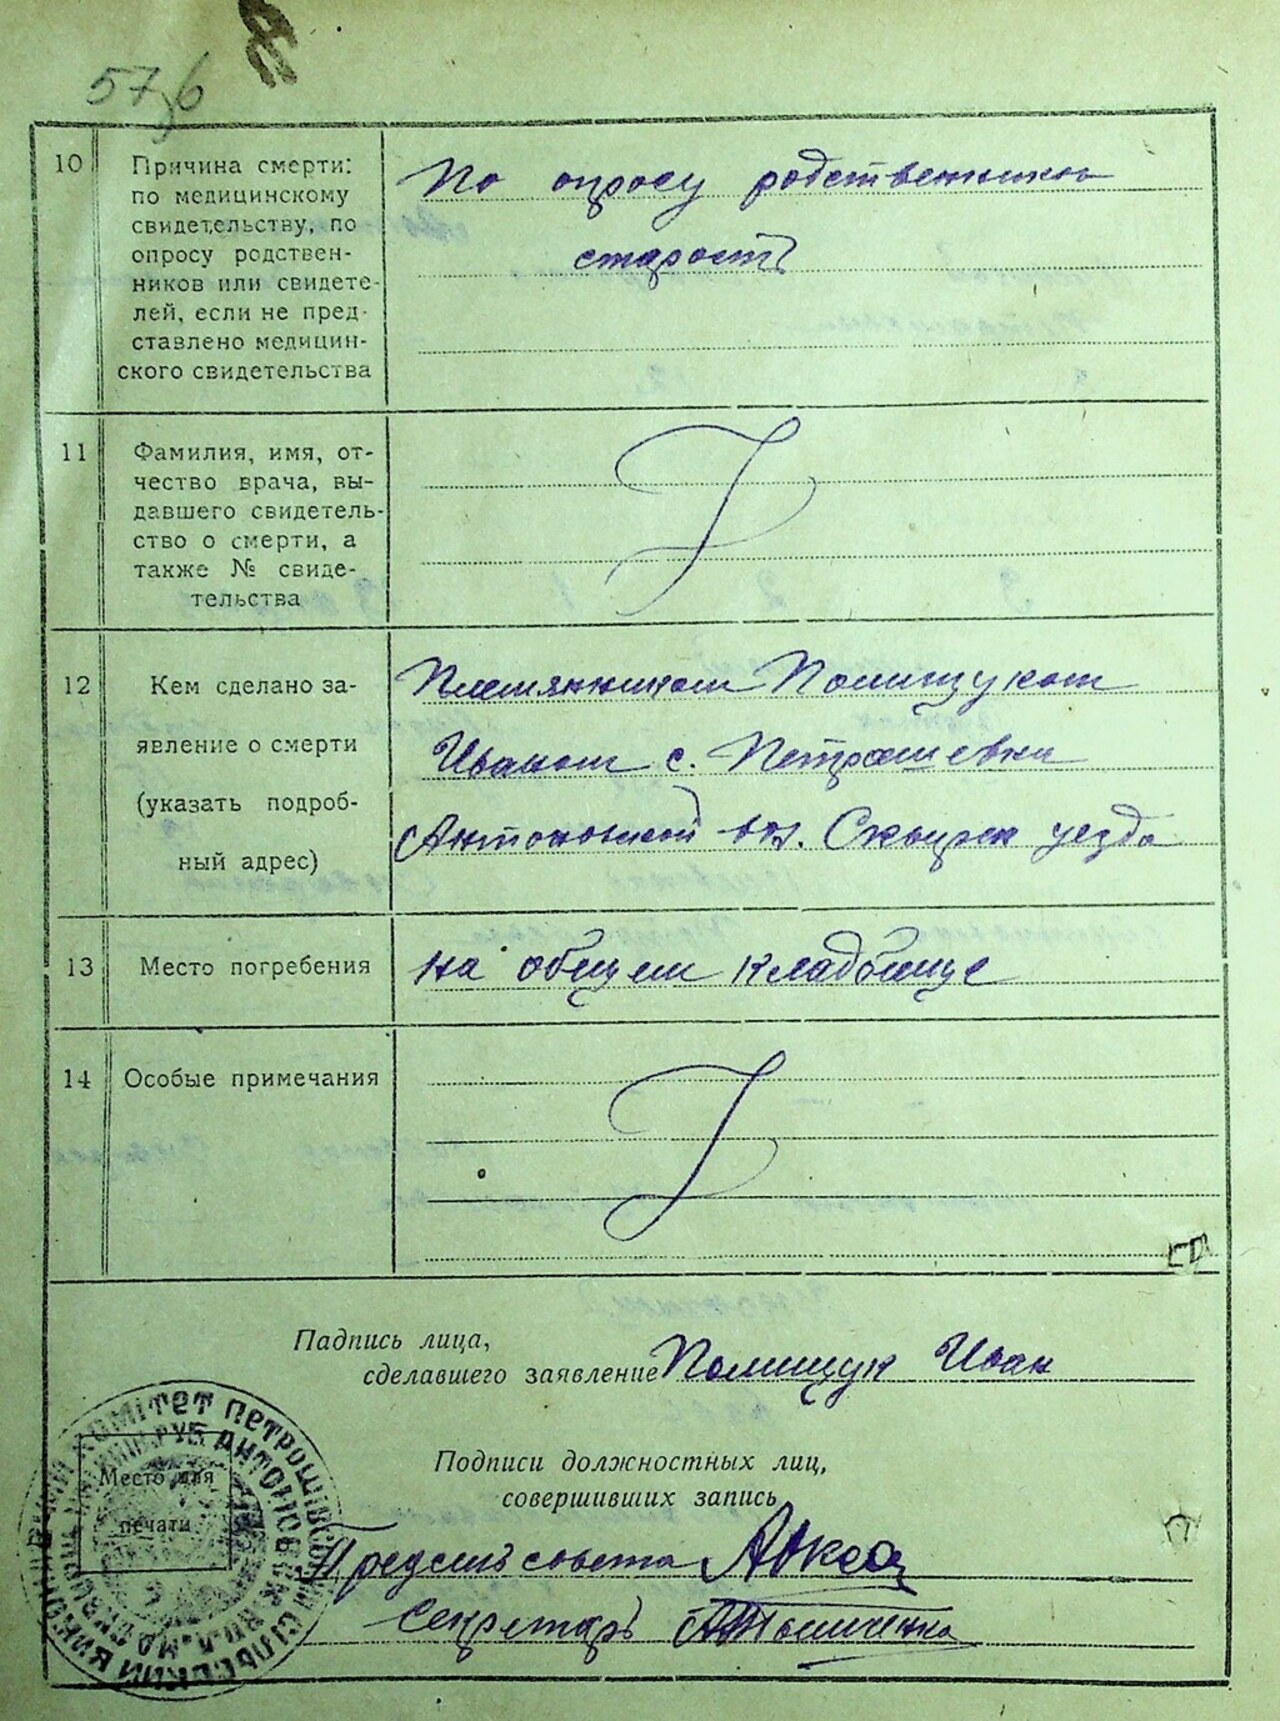 57
6
10
Причина смерти:
по медицинскому
свидетельству, по
опросу родствен-
ников или свидете-
лей, если не пред-
ставлено медицин-
ского свидетельства
По опросу родственника
старость
11
Фамилия, имя, от-
чество врача, вы-
давшего свидетель-
ство о смерти, а
также № свиде-
тельства
12
Кем сделано за-
явление о смерти
(указать подроб-
ный адрес)
Племянником Полищуком
Иваном с. Петрашевка
Антоновской вол. Сквирск уезда
13
Место погребения
на общем кладбище
14
Особые примечания
Падпись лица,
сделавшего заявление
Полищук Иван
Подписи должностных лиц,
совершивших запись
Место для
печати
КОМІТЕТ ПЕТРОШІВС
СІЛЬСЬКИЙ ВИКО
Председ совета
Секретарь